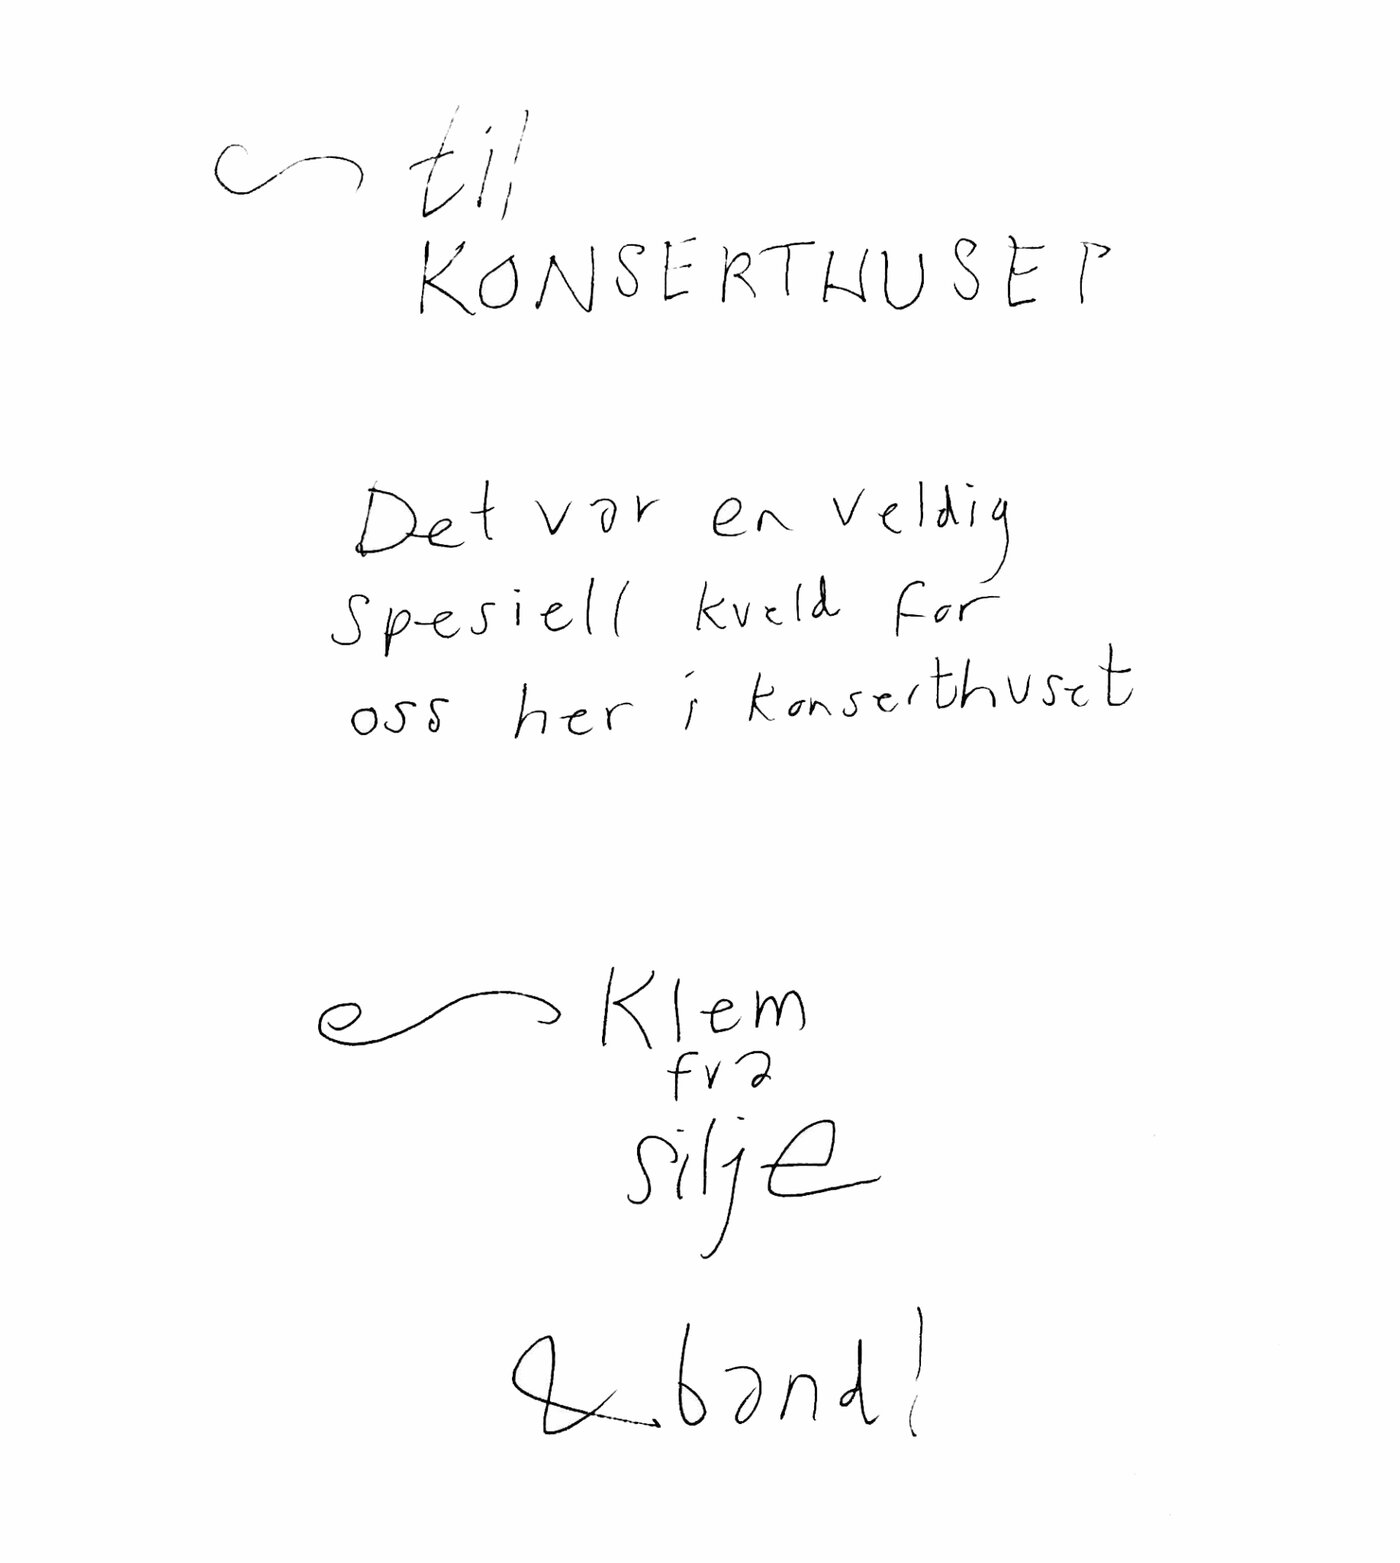 til
KONSERTHUSET
Det var en veldig
spesiell kveld for
oss her i konserthuset
Klem
fra
silje
& band!